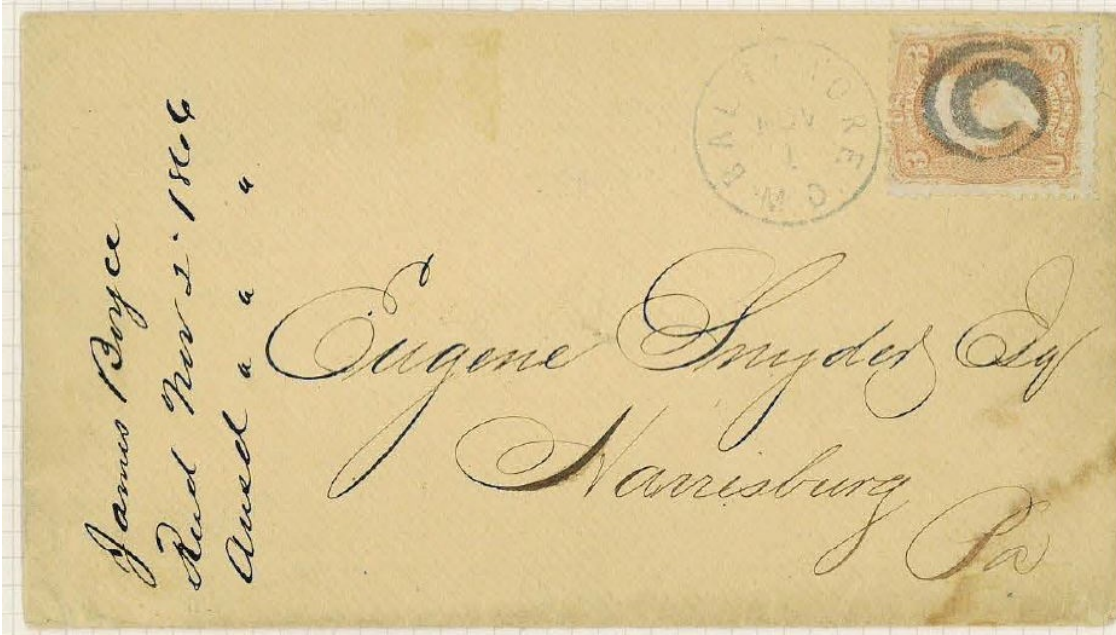 James Boyce
Recd Nov 2. 1866
Ansd " " "
BALTIMORE
NOV
1
3 3
Eugene Snyder Esq
Harrisburg
Pa